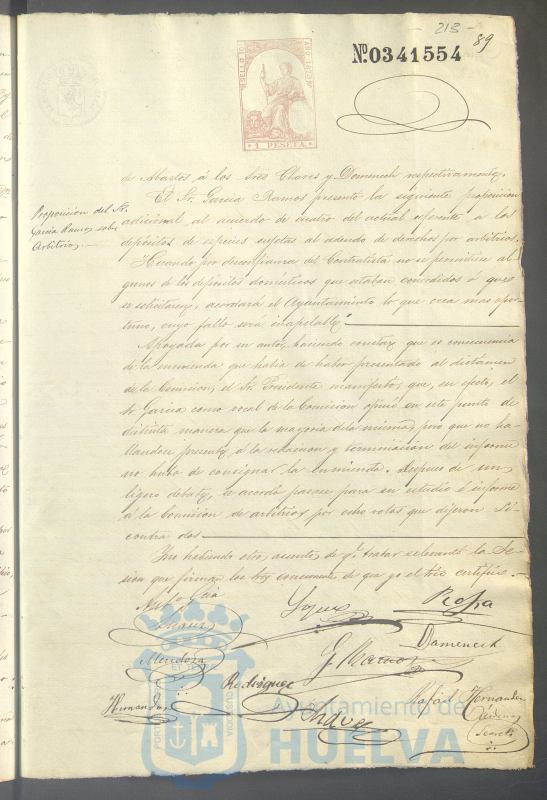 - 213 -
89
Nº 0341554
SELLO 10º AÑO 1878
1 PESETA
de Abastos á los Sres Chaves y Domenech respectivamente.
El Sr. Garcia Ramos presentó la siguiente proposicion
Proposicion del Sr.
Garcia Ramos sobre
Arbitrios.
adicional al acuerdo de cuatro del actual referente á los
depósitos de especies sujetas al adeudo de derechos por arbitrios.
"Cuando por desconfianza del Contratista no se permitiere al-
gunos de los depósitos domésticos que estaban concedidos ó que
se solicitaren, acordará el Ayuntamiento lo que crea mas opor-
tuno, cuyo fallo será inapelable."
Apoyada por su autor, haciendo constar que es consecuencia
de la enmienda que habia de haber presentado al dictamen
de la Comision, el Sr. Presidente manifestó, que, en efecto, el
Sr Garcia como vocal de la Comision opinó en este punto de
distinta manera que la mayoria de la misma, pero que no ha-
llandose presente á la redaccion y terminacion del informe
no hubo de consignar la enmienda. Despues de un
ligero debate, se acordó pasase para su estudio é informe
á la Comision de arbitrios por ocho votos que dijeron Sí
contra dos
Y no habiendo otro asunto de q. tratar se levantó la Se-
sion que firman los Sres concurrentes de que yo el Srio certifico.
Domenech
Mendoza
Rodriguez
Hernandez
Chaves
Rafael Hernandez
Secret.
PORTUS MARIS ET TERRE CUSTODIA
Ayuntamiento de
HUELVA